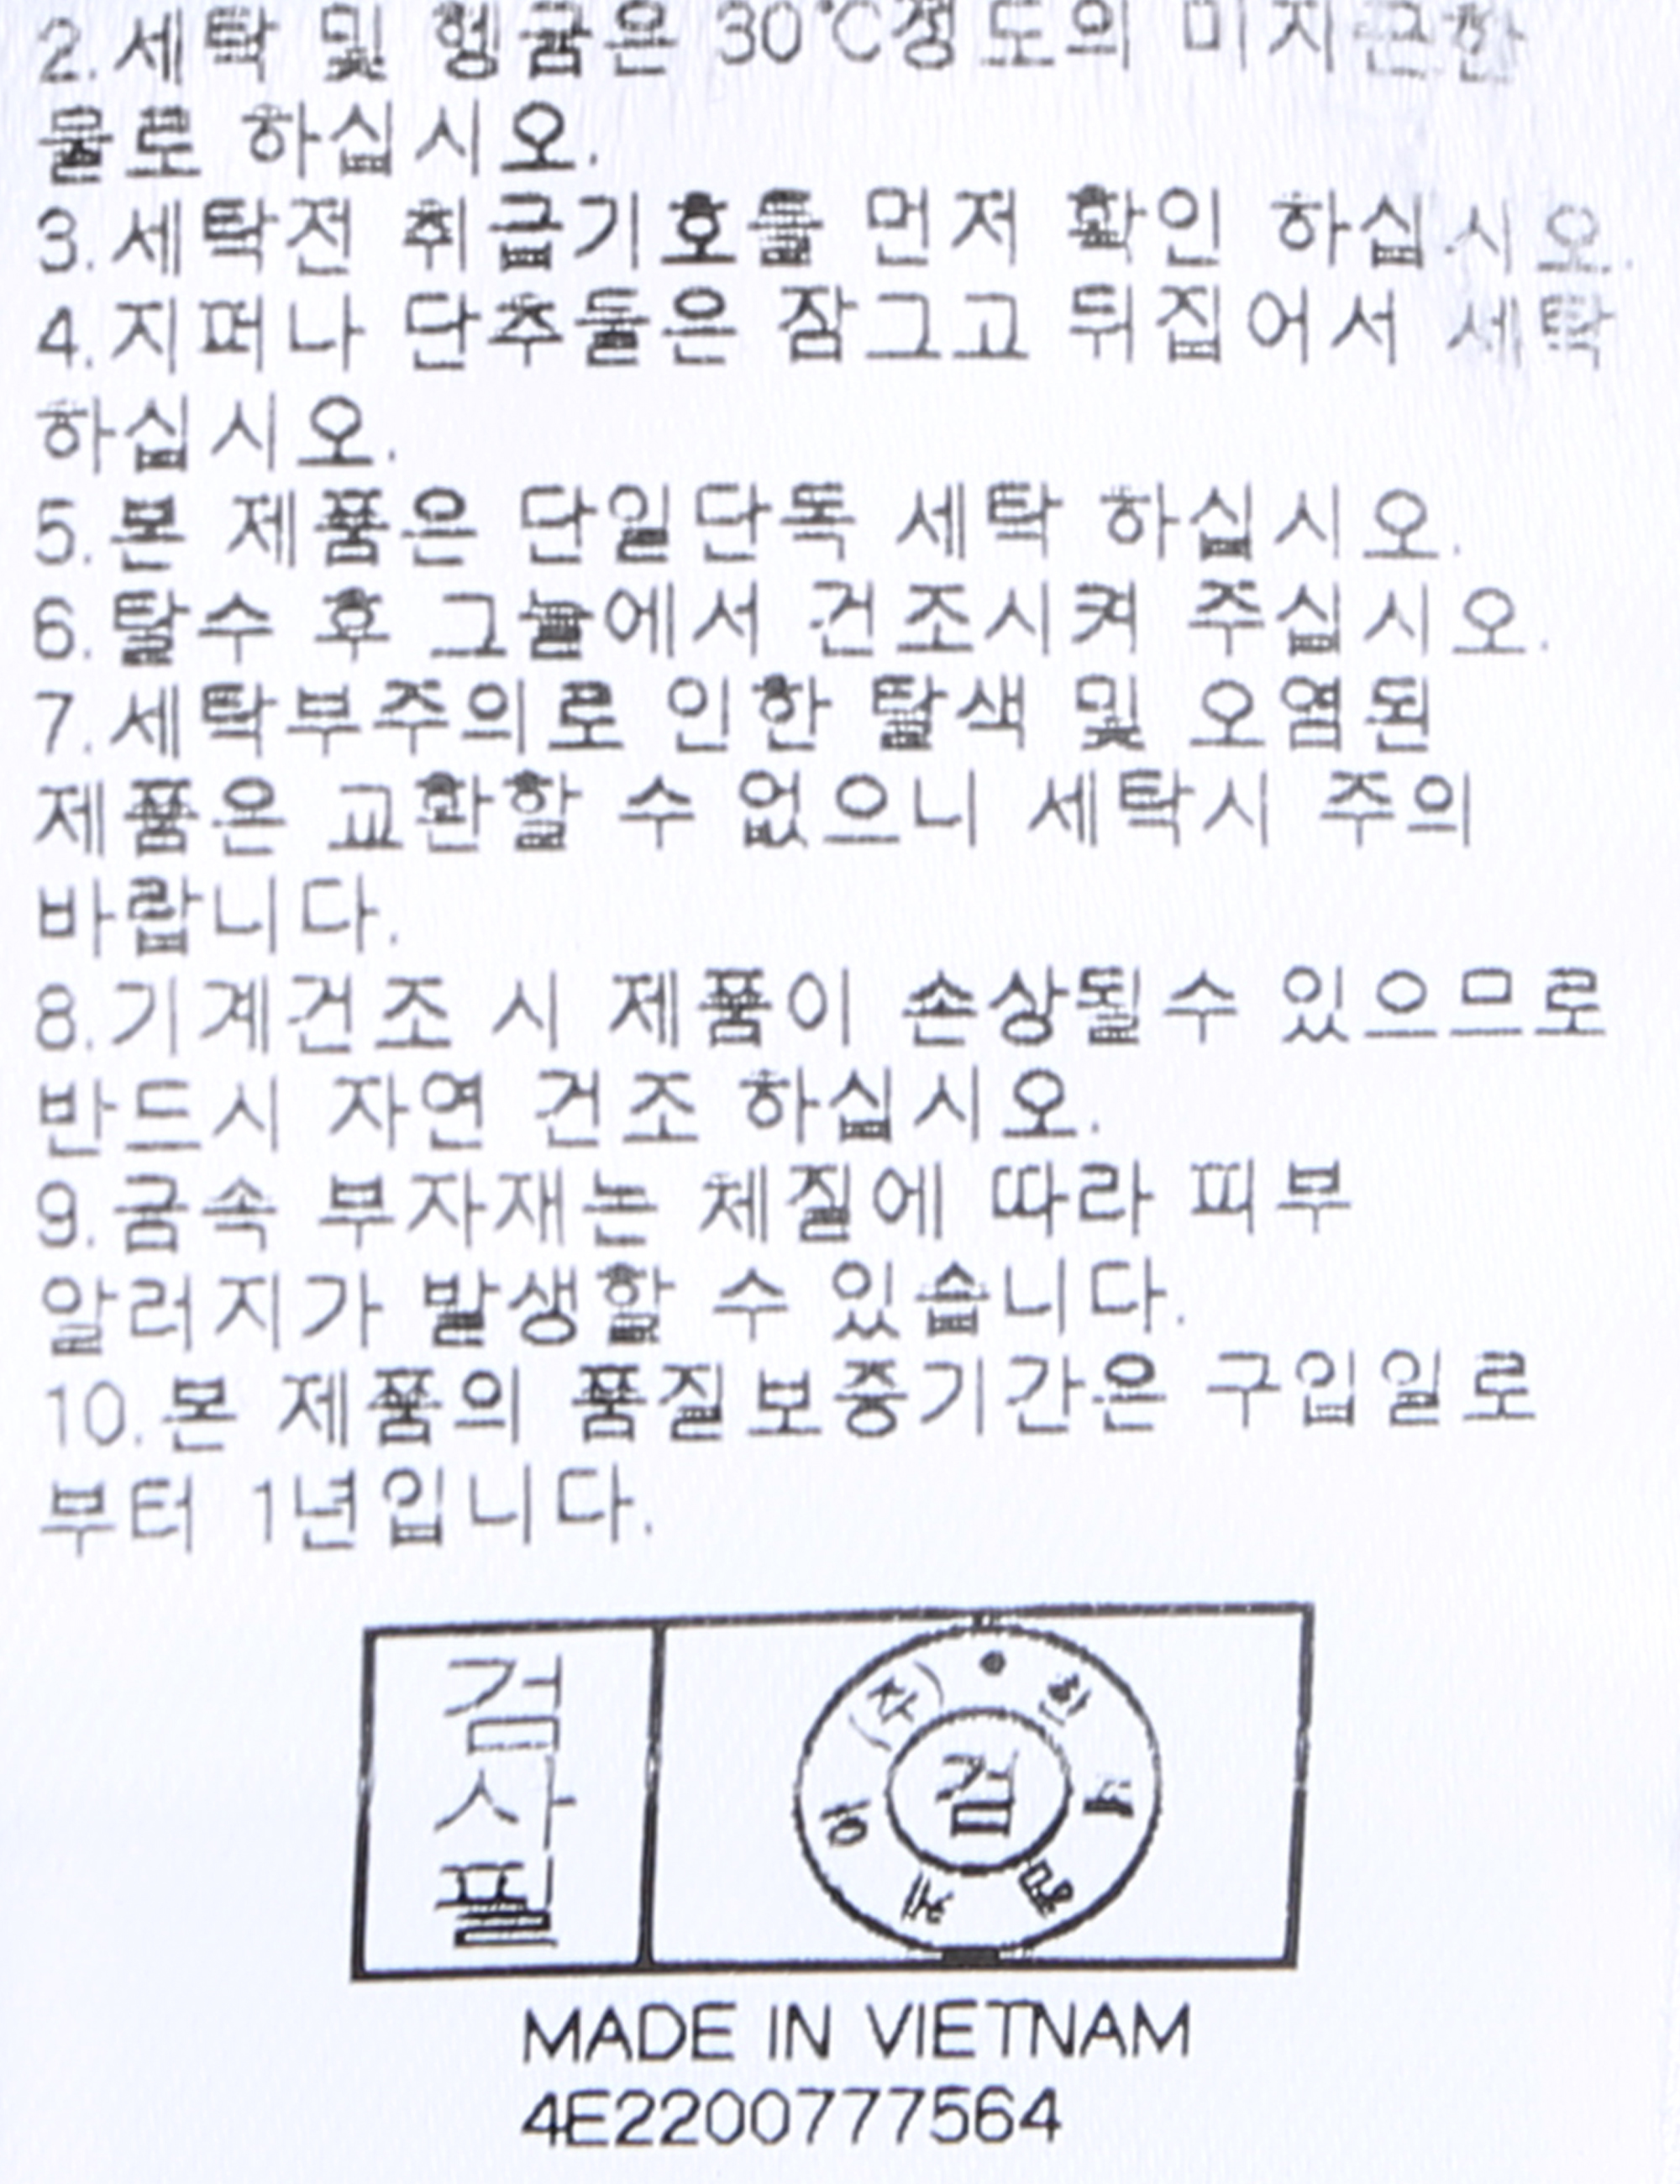 2.세탁 및 헹굼은 30℃정도의 미지근한
물로 하십시오.
3.세탁전 취급기호를 먼저 확인 하십시오.
4.지퍼나 단추들은 잠그고 뒤집어서 세탁
하십시오.
5.본 제품은 단일단독 세탁 하십시오.
6.탈수 후 그늘에서 건조시켜 주십시오.
7.세탁부주의로 인한 탈색 및 오염된
제품은 교환할 수 없으니 세탁시 주의
바랍니다.
8.기계건조 시 제품이 손상될수 있으므로
반드시 자연 건조 하십시오.
9.금속 부자재는 체질에 따라 피부
알러지가 발생할 수 있습니다.
10.본 제품의 품질보증기간은 구입일로
부터 1년입니다.
검사필
검
MADE IN VIETNAM
4E2200777564